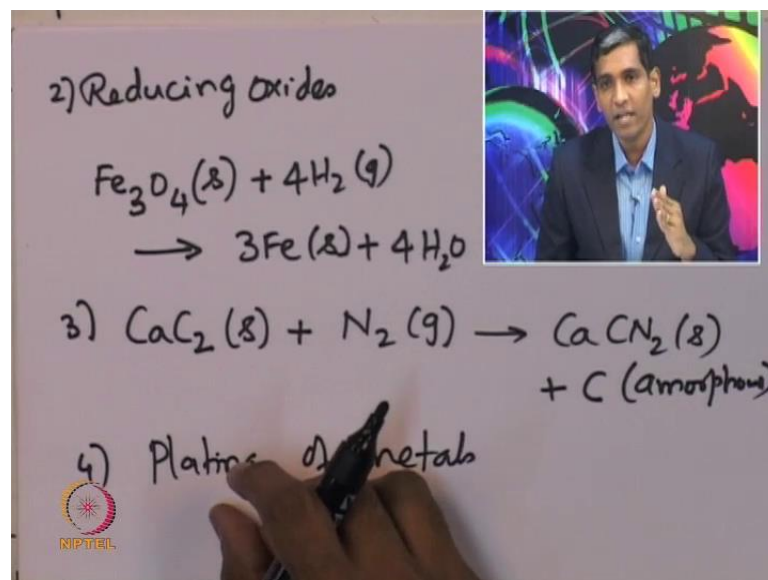 2) Reducing oxides
Fe3O4(s) + 4H2(g)
⟶ 3Fe(s) + 4H2O
3) CaC2(s) + N2(g) ⟶ CaCN2(s)
+ C (amorphous)
4) Plating of metals
NPTEL